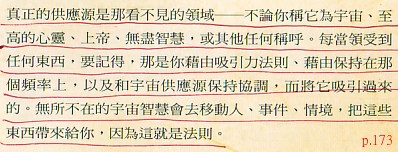 真正的供應源是那看不見的領域——不論你稱它為宇宙、至
高的心靈、上帝、無盡智慧，或其他任何稱呼。每當領受到
任何東西，要記得，那是你藉由吸引力法則、藉由保持在那
個頻率上，以及和宇宙供應源保持協調，而將它吸引過來
的。無所不在的宇宙智慧會去移動人、事件、情境，把這些
東西帶來給你，因為這就是法則。
p.173